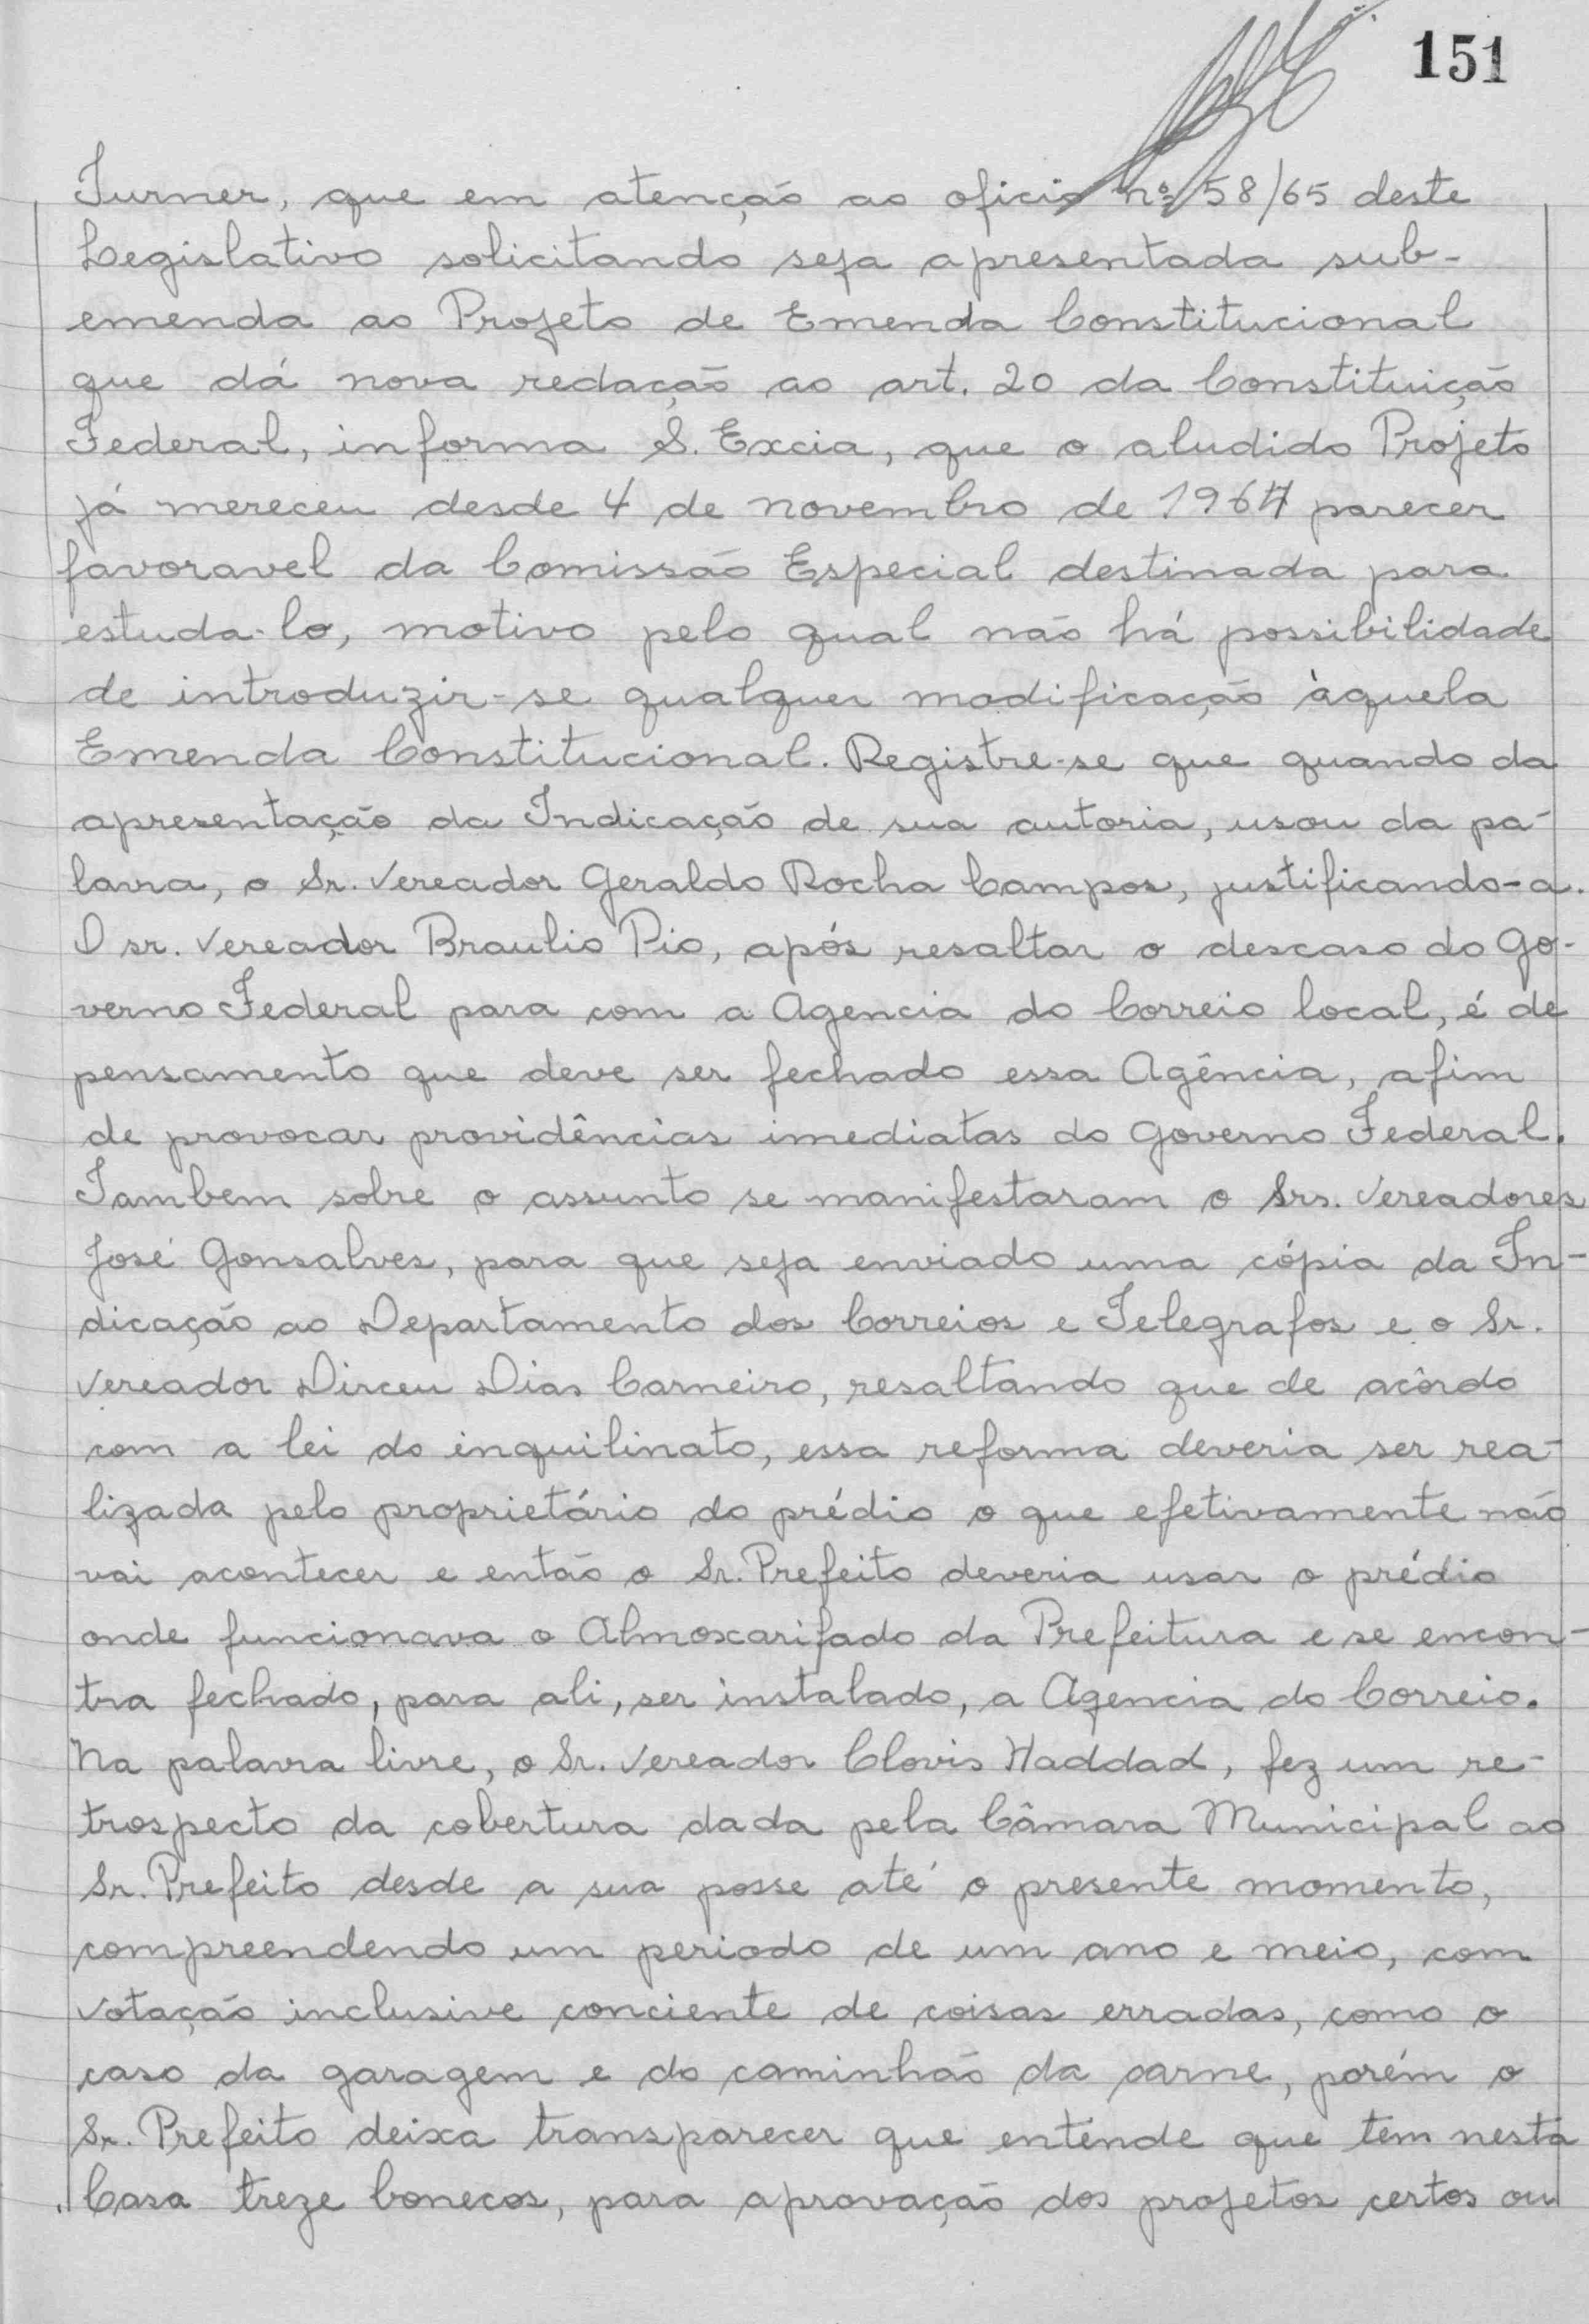 151
Turner, que em atenção ao oficio nº 58/65 deste
Legislativo solicitando seja apresentada sub-
emenda ao Projeto de Emenda Constitucional
que dá nova redação ao art. 20 da Constituição
Federal, informa S. Excia, que o aludido Projeto
já mereceu desde 4 de novembro de 1964 parecer
favoravel da Comissão Especial destinada para
estuda-lo, motivo pelo qual não há possibilidade
de introduzir-se qualquer modificação àquela
Emenda Constitucional. Registre-se que quando da
apresentação da Indicação de sua autoria, usou da pa-
lavra, o Sr. Vereador Geraldo Rocha Campos, justificando-a.
O sr. Vereador Braulio Pio, após resaltar o descaso do Go-
verno Federal para com a Agencia do Correio local, é de
pensamento que deve ser fechado essa Agência, afim
de provocar providências imediatas do Governo Federal.
Tambem sobre o assunto se manifestaram o Srs. Vereadores
José Gonsalves, para que seja enviado uma cópia da In-
dicação ao Departamento dos Correios e Telegrafos e o Sr.
Vereador Dirceu Dias Carneiro, resaltando que de acôrdo
com a lei do inquilinato, essa reforma deveria ser rea-
lizada pelo proprietário do prédio o que efetivamente não
vai acontecer e então o Sr. Prefeito deveria usar o prédio
onde funcionava o Almoxarifado da Prefeitura e se encon-
tra fechado, para ali, ser instalado, a Agencia do Correio.
Na palavra livre, o Sr. Vereador Clovis Haddad, fez um re-
trospecto da cobertura dada pela Câmara Municipal ao
Sr. Prefeito desde a sua posse até o presente momento,
compreendendo um periodo de um ano e meio, com
votação inclusive conciente de coisas erradas, como o
caso da garagem e do caminhão da carne, porém o
Sr. Prefeito deixa transparecer que entende que tem nesta
Casa treze bonecos, para aprovação dos projetos certos ou